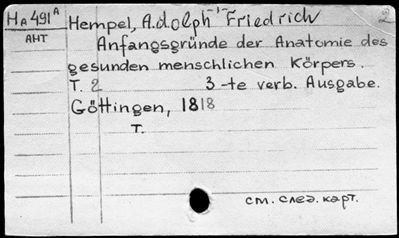 HA 491A Hempel, Adolph Friedrich 2
AHT Anfangsgründe der Anatomie des
gesunden menschlichen Körpers.
T. 2 3-te verb. Ausgabe.
Göttingen, 1818
T.
см. след. карт.